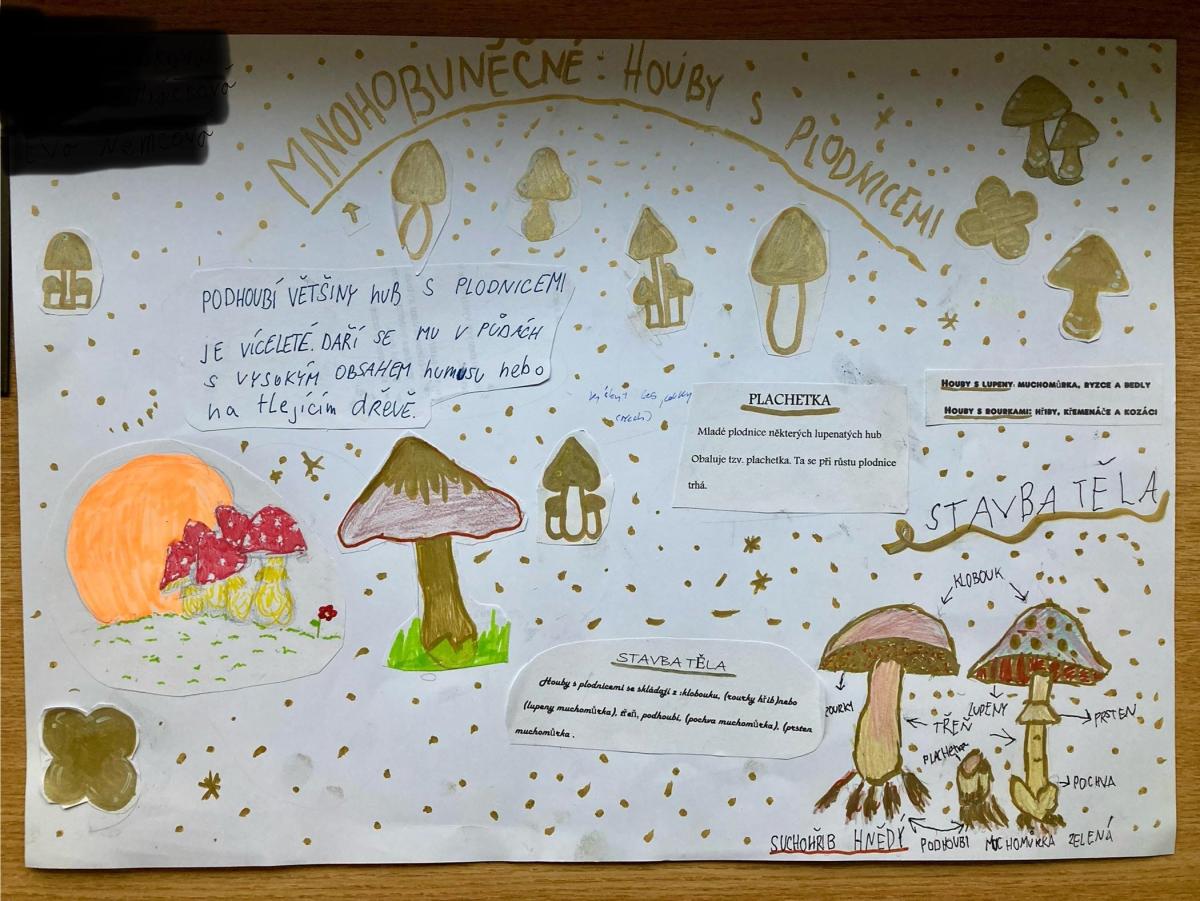 MNOHOBUNĚČNÉ: HOUBY S PLODNICEMI
PODHOUBÍ VĚTŠINY hUB S PLODNICEMI
JE VÍCELETÉ. DAŘÍ SE MU V PŮDÁCH
S VYSOKÝM OBSAHEM humusu nebo
na tlejícím dřevě.
PLACHETKA
Mladé plodnice některých lupenatých hub
Obaluje tzv. plachetka. Ta se při růstu plodnice
trhá.
HOUBY S LUPENY: MUCHOMŮRKA, RYZCE A BEDLY
HOUBY S ROURKAMI: HŘIBY, KŘEMENÁČE A KOZÁCI
STAVBA TĚLA
STAVBA TĚLA
Houby s plodnicemi se skládají z :klobouku, (rourky hřib)nebo
(lupeny muchomůrka), třeň, podhoubí, (pochva muchomůrka), (prsten
muchomůrka .
KLOBOUK
ROURKY
LUPENY
PRSTEN
TŘEŇ
PLACHETKA
POCHVA
SUCHOHŘIB HNĚDÝ
PODHOUBÍ
MUCHOMŮRKA ZELENÁ